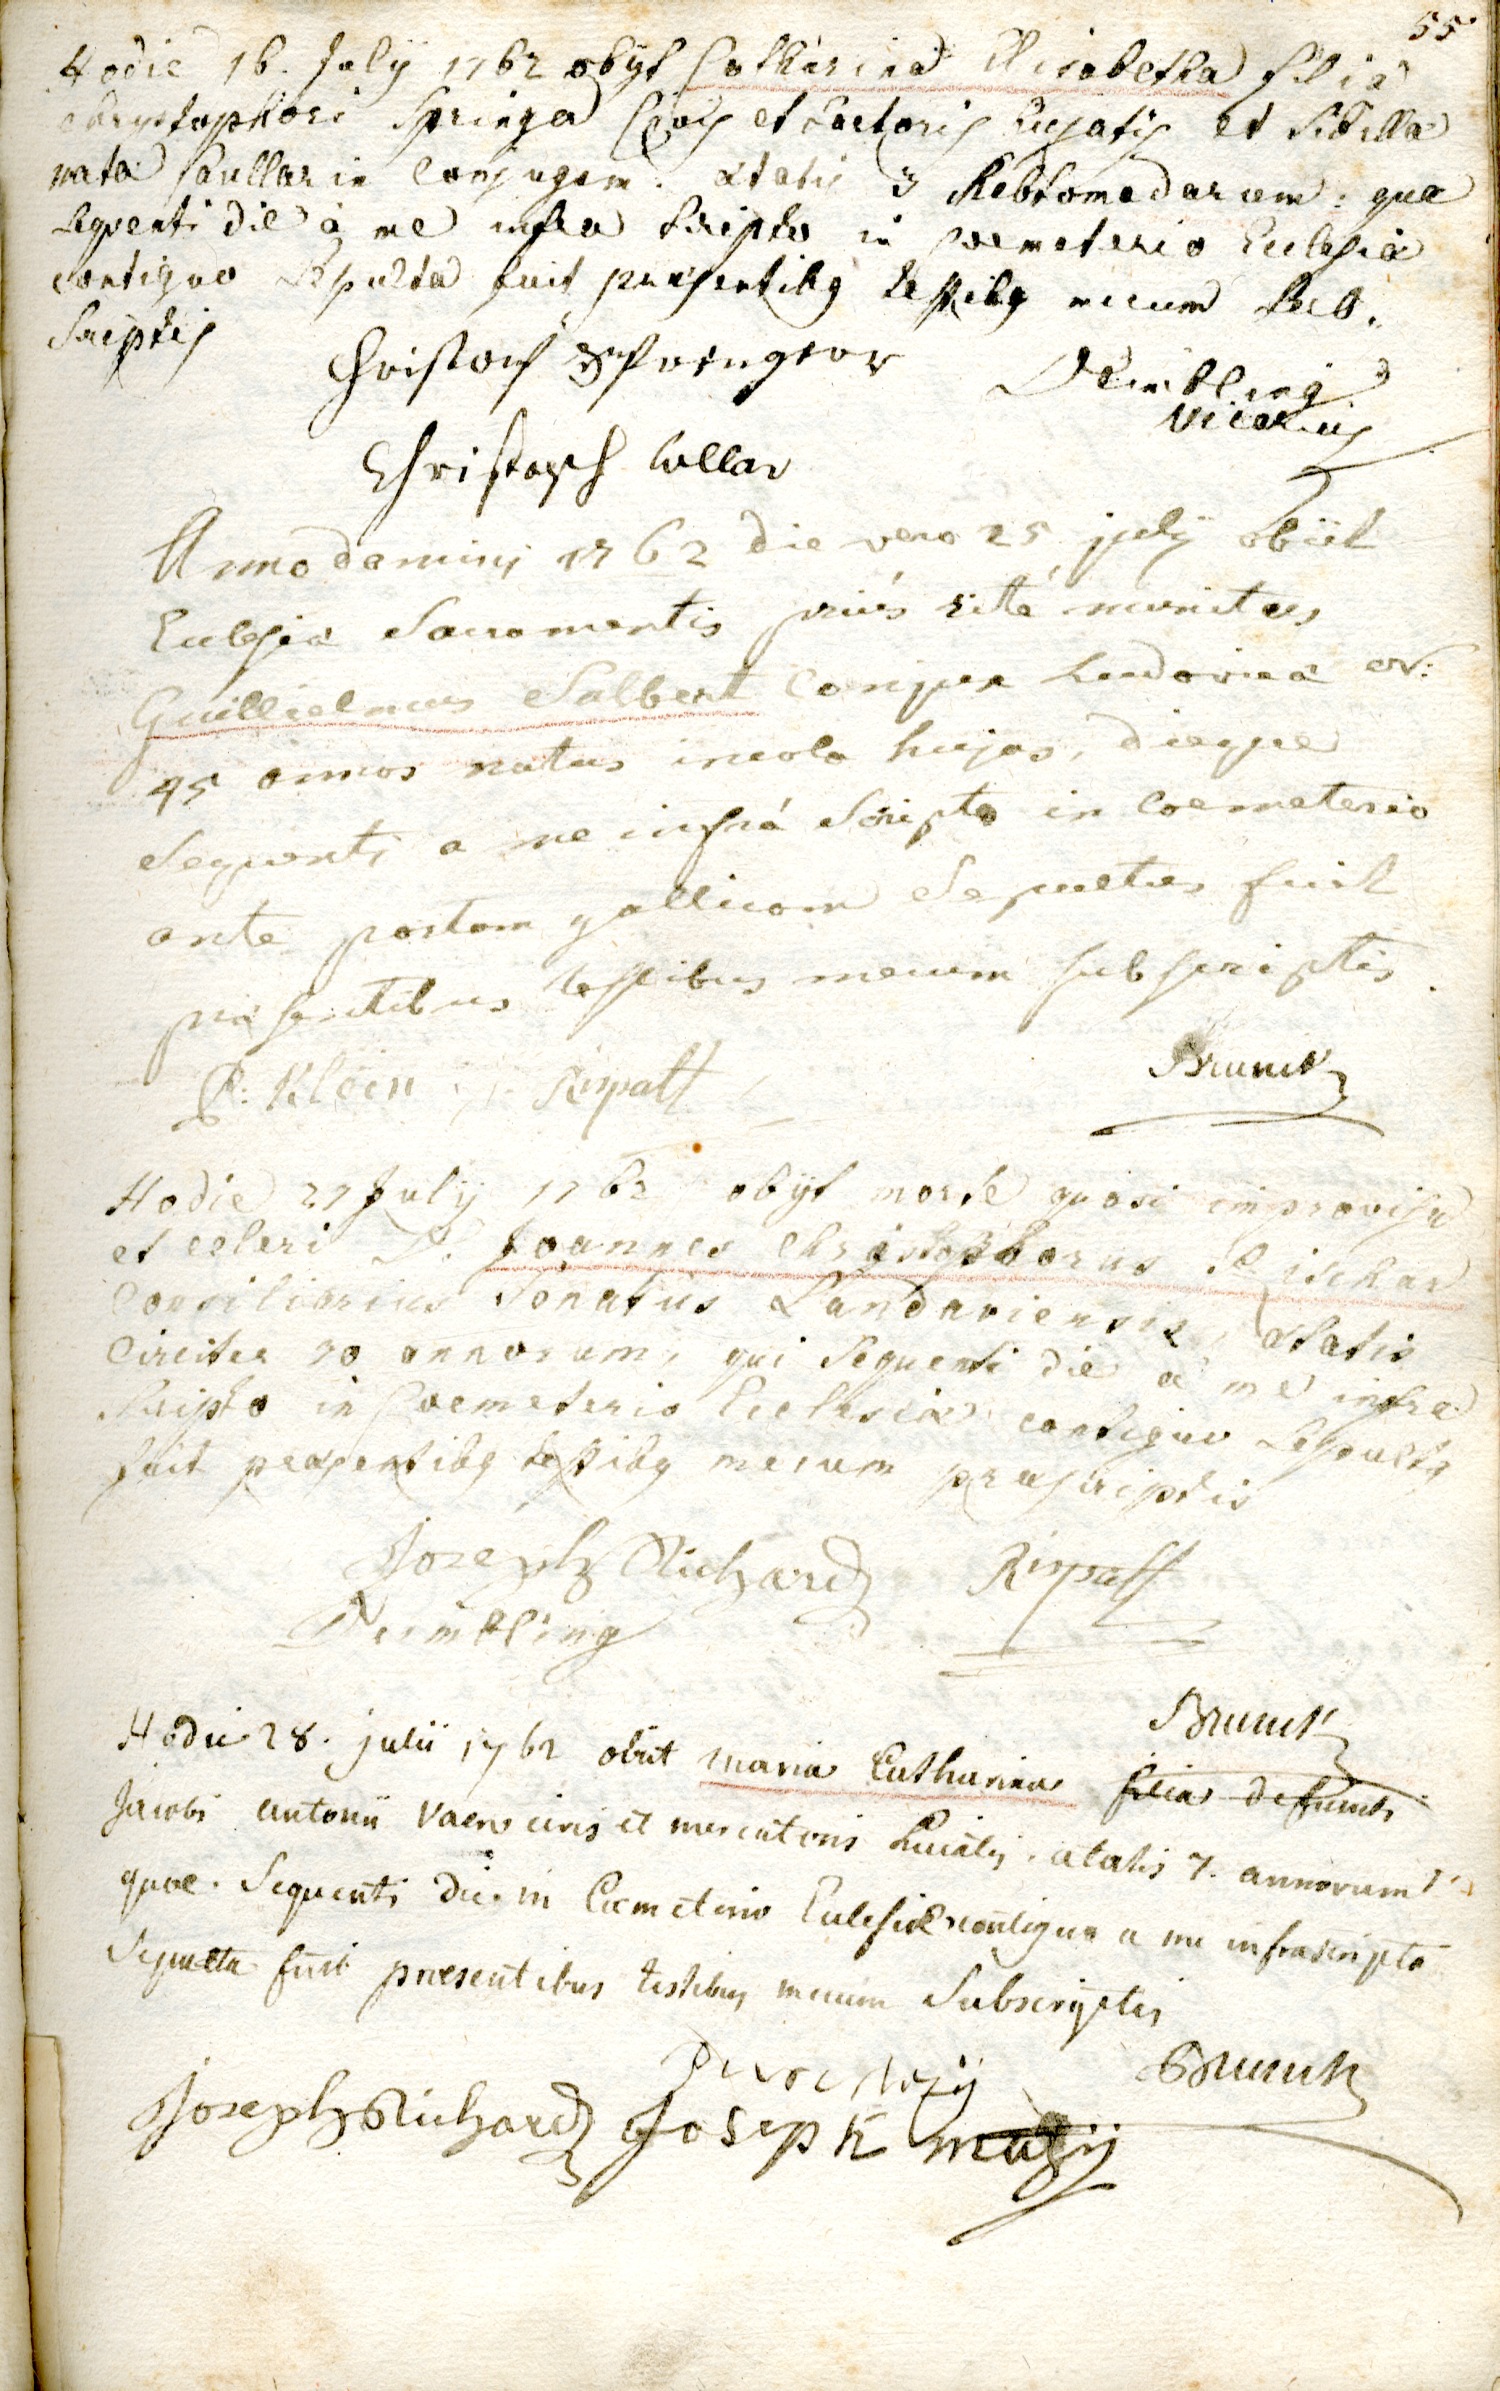 55
Hodie 16. July 1762 obijt Catharina Elisabetha filia
Christophori Springer Civis et Sartoris hujatis et Sibilla
nata Coullar in conjugem. ætatis 3 Hebdomadarum: quæ
sequenti die à me infra scripto in coemeterio Ecclesiæ
contiguo sepulta fuit præsentibq testibq mecum sub.
scriptis
Christoph Springer
Deimbling
vicarius
Christoph Collar
Anno domini 1762 die vero 25 july obiit
Ecclesiæ Sacramentis priús rité munitus
Guillielmus Salbert conjux Ludovica
45 annos natus incola hujas, dieque
sequenti a me infrá scripto in Coemeterio
ante portam gallicam sepultus fuit
præsentibus testibus mecum subscriptis.
P: Klein Rispalt
Brunck
Hodie 27 July 1762 obijt morte quasi improvisa
et celeri D. Joannes Christophorus
Consiliarius Senatus Landaviensis, ætatis
Circiter 70 annorum, qui sequenti die a me infra
scripto in Coemeterio Ecclesiæ contiguo sepultq
fuit præsentibq testibq mecum præscriptis
Joseph Richard Rispalt
Deimbling
Brunck
Hodie 28. julii 1762 obiit maria Catharina filia defuncti
Jacobi antonii civis et mercatoris hujatis, ætatis 7. annorum
quæ sequenti die in Coemeterio Ecclesiæ contiguo a me infrascripto
Sepulta fuit præsentibus testibus mecum Subscriptis
Joseph Richard Joseph
Brunck